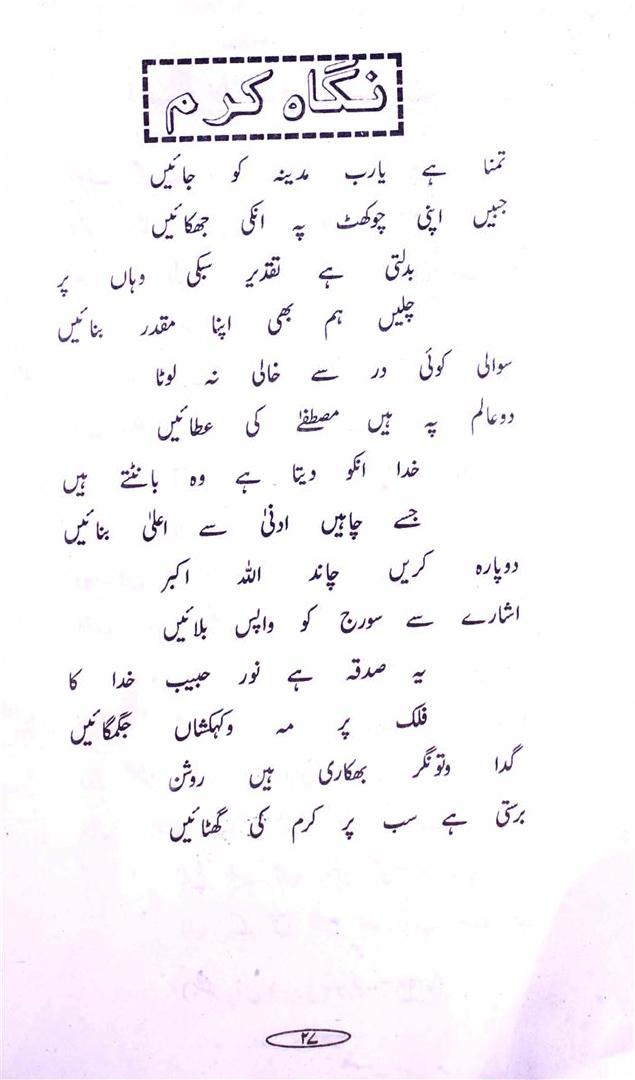 نگاہ کرم
تمنا ہے یارب مدینہ کو جائیں
جبیں اپنی چوکھٹ پہ انکی جھکائیں
بدلتی ہے تقدیر سبکی وہاں پر
چلیں ہم بھی اپنا مقدر بنائیں
سوالی کوئی در سے خالی نہ لوٹا
دوعالم پہ ہیں مصطفےٰ کی عطائیں
خدا انکو دیتا ہے وہ بانٹتے ہیں
جسے چاہیں ادنیٰ سے اعلیٰ بنائیں
دوپارہ کریں چاند اللہ اکبر
اشارے سے سورج کو واپس بلائیں
یہ صدقہ ہے نور حبیب خدا کا
فلک پر مہ وکہکشاں جگمگائیں
گدا وتونگر بھکاری ہیں روشن
برستی ہے سب پر کرم کی گھٹائیں
۲۷